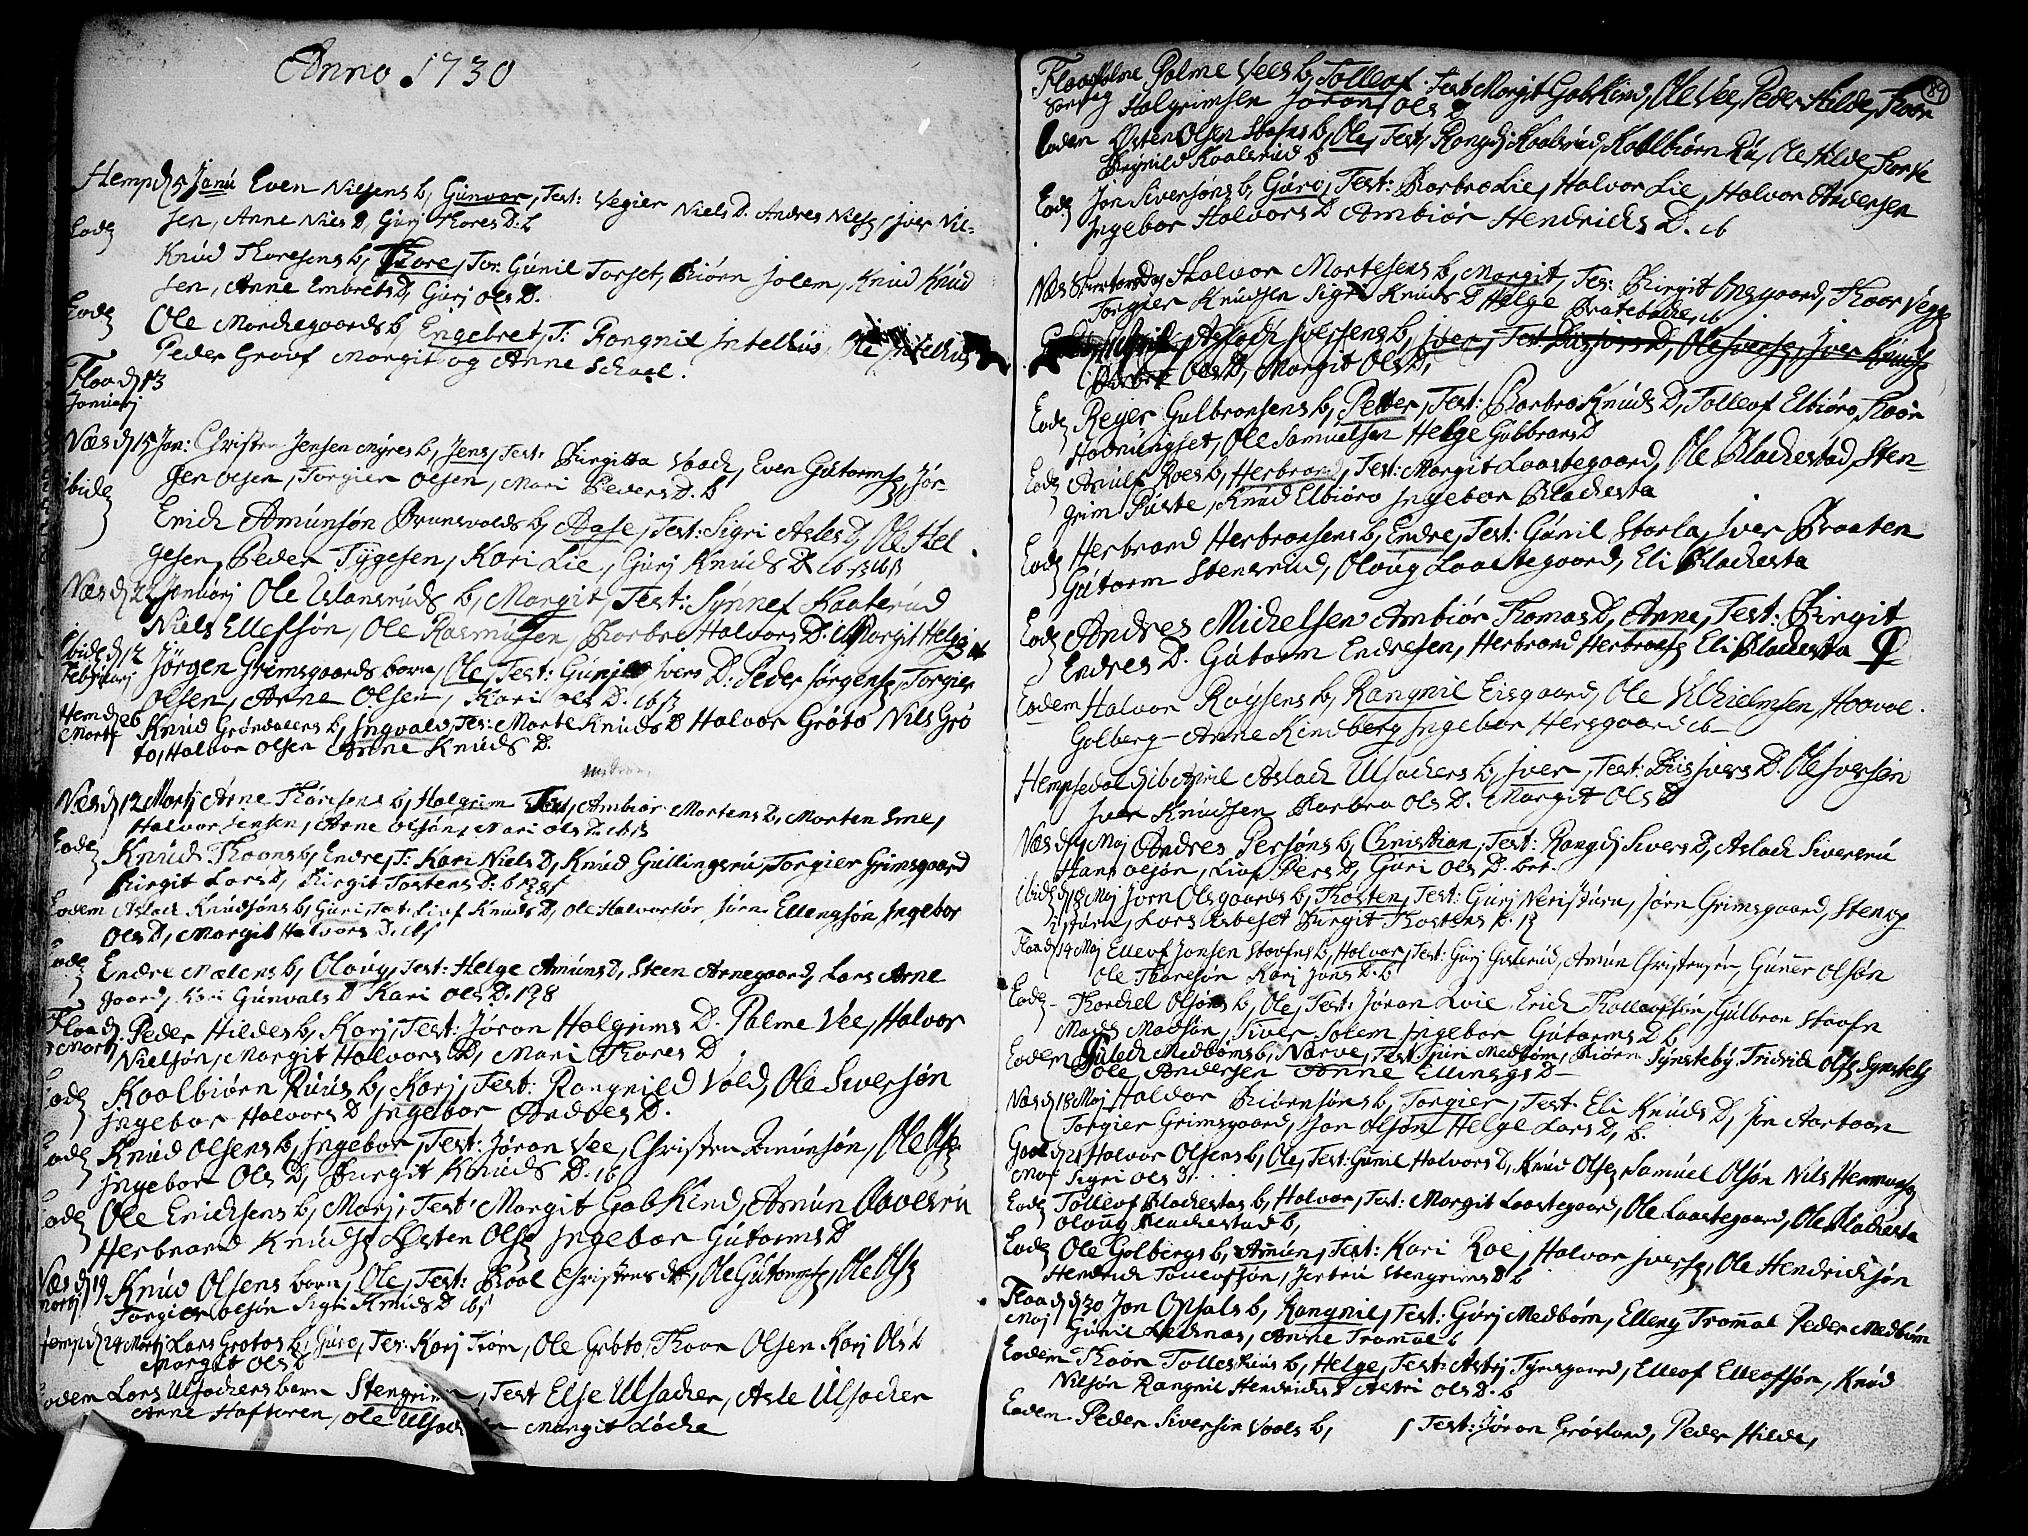 Anno 1730
Hemp d 5 Janu Even Nielsens b, Gunvor, Test: Vegier Niels D. Andres Nielsz, Iver Niel-
sen, Anne Niels D, Gurj Thores D: b
Eodz Knud Thoresens b, Thore, Tes: Gunil Torset, Biørn Solem, Knud Knud
sen, Anne Embrets D, Gurj Ols D.
Eodz Ole Morchegaards b, Engebret, T: Rongnil Intelhus, Ole Intelhus
Peder Grouf Margit og Anne School.
Flaa d 13
Januarj
Næs d 15 Jan: Christen Jensen Myres b, Jens, Test: Birgitta Vaach, Even Gutormsz, Jør-
gen Olsen, Torgier Olsen, Mari Peders D. b
ibidz Erich Amunsøn Brunsvolds b, Aase, Test: Sigri Asles D, Ole Hel
gesen, Peder Tygesen, Kari Lie, Gurj Knuds D
Næs d 22 Januarj Ole Uslansruds b, Margit, Test: Synnef Kaaterud
Niels Ellefsøn, Ole Rasmussen, Barbro Halvors D: Margit Helgi
ibid d 12 Februarj Jørgen Grimsgaards barn, Ole, Test: Gunj Ivers D: Peder Jørgensz, Torgier
Olsen, Anne Olsen, Kari Ols D.
Hem d 26 Martj Knud Grøndalens b, Ingvald, Tes: Marte Knuds D Halvor Grøto Nils Grø
to, Halvor Olsen Anne Knuds D.
Næs d 12 Martj Arne Thoresens b, Halgrim Test, Ambiør Mortens D, Morten Sme,
Halvor Jensen, Arne Olsøn, Mari Ols D
Eodz Knud Thoons b, Endre, T: Kari Niels D, Knud Gullingsru, Torgier Grimsgaard
Birgit Lars D, Birgit Tostens D: b
Eodem Aslach Knudsøns b, Guri, Tes: Lief Knuds D, Ole Halvorsøn Jørn Ellengsøn Ingebor
Ols D, Margit Halvors D
Eodz Endre Mælens b, Oloug, Test: Helge Amuns D, Steen Arnegaard, Lars Arne
gaard, Kari Gunvals D Kari Ols D.
Flaa d Martj Peder Hildes b, Karj, Test: Jøran Halgrims D. Palme Vee, Halvor
Nielsøn, Margit Halvors D, Mari Thores D
Eodz Kaalbiørn Ruus b, Karj, Test: Rangnild Vold, Ole Siversøn
Ingebor Halvors D Ingebor Andres D.
Eodz Knud Olsens b, Ingebor, Test: Jøran Vee, Christen Amunsøn, Ole Olsz
Ingebor Ols D, Birgit Knuds D. ib
Eodz Ole Erichsens b, Marj, Test: Margit Gabkind, Amun Aavesru
Herbrand Knudsz Østen Olsz Ingebor Gutorms D
Næs d 19 Martj Knud Olsens barn, Ole, Test: Boel Christens D, Ole Gutormsz, Ole Olsz
Torgier Olsøn Sigri Knuds D
Hemp d 24 Martj Lars Grotos b, Guro, Tes: Karj Trøim, Ole Grøto, Thoor Olsen Karj Ols D
Margit Ols D
Eodem Lars Ulsachers barn Stengrim, Test Else Ulsacher, Asle Ulsacher
Anne Hafturen, Ole Ulsacher Margit Løche
89
Flaa Palme Vees b, Tolleof. Test Margit Gabkind, Ole Vee, Peder Hilde, Thoor
Halgrimsen Jøran Ols D
Eodem Østen Olsen Stafns b, Ole, Test, Rangdj Kaalsrud, Kaalbiørn Ru, Ole Hilde,
Rangnild Kaalsrud b
Eodz Jon Siversøns b, Guro, Test: Barbro Lie, Halvor Lie, Halvor Andersen
Ingebor Halvors D Ambiør Hendrichs D. ib
Næs Halvor Mortesens b, Margit, Tes: Birgit Onsgaard, Thoor Vegge
Torgier Knudsen Sigri Knuds D Helge Bratebache ib
Aslach Iversens b, Iver, Test: Ivers D, Ole Iversz, Iver Knudsz
Barbro Ols D, Margit Ols D,
Eodz Reyer Gulbransens b, Petter, Test: Barbro Knuds D, Tolleof Elbiøro, Thoor
Hovrungset, Ole Samuelsen Helge Gulbrans D
Eodz Arnulf Roes b, Herbrand, Test: Margit Laastegaard, Ole Blachestad, Sten-
grim Puste, Knud Elbiøro Ingebor Blachesta
Eodz Herbrand Herbransens b, Endre, Test: Gunil Storla, Iver Braaten
Gutorm Stensrud, Oloug Laastegaard, Eli Blachesta
Eodz Andres Michelsen Ambiør Thomas D, Anne, Test: Birgit
Endres D. Gutorm Endresen, Herbrand Herbransz Eli Blachesta
Eodem Halvor Roysens b, Rangnil Eisgaard, Ole Vilhielmsen, Haavol
Golberg - Anne Kindberg Ingebor Hersgaard ib
Hempsedal d 16 April Aslach Ulsachers b, Iver, Test: Lisj Ivers D. Ole Iversøn
Iver Knudsen Barbro Ols D. Margit Ols D
Næs d 4 Maj Andres Persøns b, Christian, Test: Rangdj Sivers D, Aslach Siversru
Hans Olsøn, Liv Pers D, Guri Ols D.
ibid d 18 Maj Jørn Olsgaards b, Thosten, Test: Gurj Neristurn, Jørn Grimsgaard, Steng
Lars Birgit Thostens D.
Flaa d 14 Maj Elleof Jonsen Stavns b, Halvor, Test: Gurj Gislerud, Amun Christensøn, Guner Olsøn
Ole Thoresøn Karj Jons D. b
Eodz Thorchel Olsøns b, Ole, Test: Jøran Lvie Erich Tholleofsøn, Gulbran Stavn
Mads Madsøn, Siver Solem Ingebor Gutorms D b
Eodem Medbøms b, Narve, Test: Guri Medbøm, Biørn Synsteby, Fridrich Olsz Synsteby
Andersen Anne Ellings D
Næs d 18 Maj Halvor Biørnsøns b, Torgier, Test: Eli Knuds D, Jon Aartoon
Torgier Grimsgaard, Jon Olsøn Helge Lars D, b.
Gool d 21 Maj Halvor Olsens b, Ole, Test: Gunil Halvors D, Knud Olsz Samuel Olsøn Nils Hemingsz
Sigri Ols D.
Eodz Tolleof Blachestas b, Halvor, Test: Margit Laastegaard, Ole Laastegaard, Ole Blachesta
Oloug Blachestad b,
Eodz Ole Golbergs b, Amun, Test: Kari Roe, Halvor Iversz, Ole Hendrichsøn
Hendrich Tolleofsøn, Jertru Stengrims D b
Flaa d 30 Maj Jon Opsals b, Rangnil, Test: Gurj Medbøm, Elleng Trommal Peder Medbøm
Gunil Anne Trommal b
Eodem Thoor Tolleshuus b, Helge, Test: Astrj Tyrsgaard, Elleof Elleofsøn, Knud
Nilsøn Rangnil Hendrichs D Astri Ols D. b
Eodem Peder Siversøn Vools b, / Test: Jøran Grøsland, Peder Hilde,